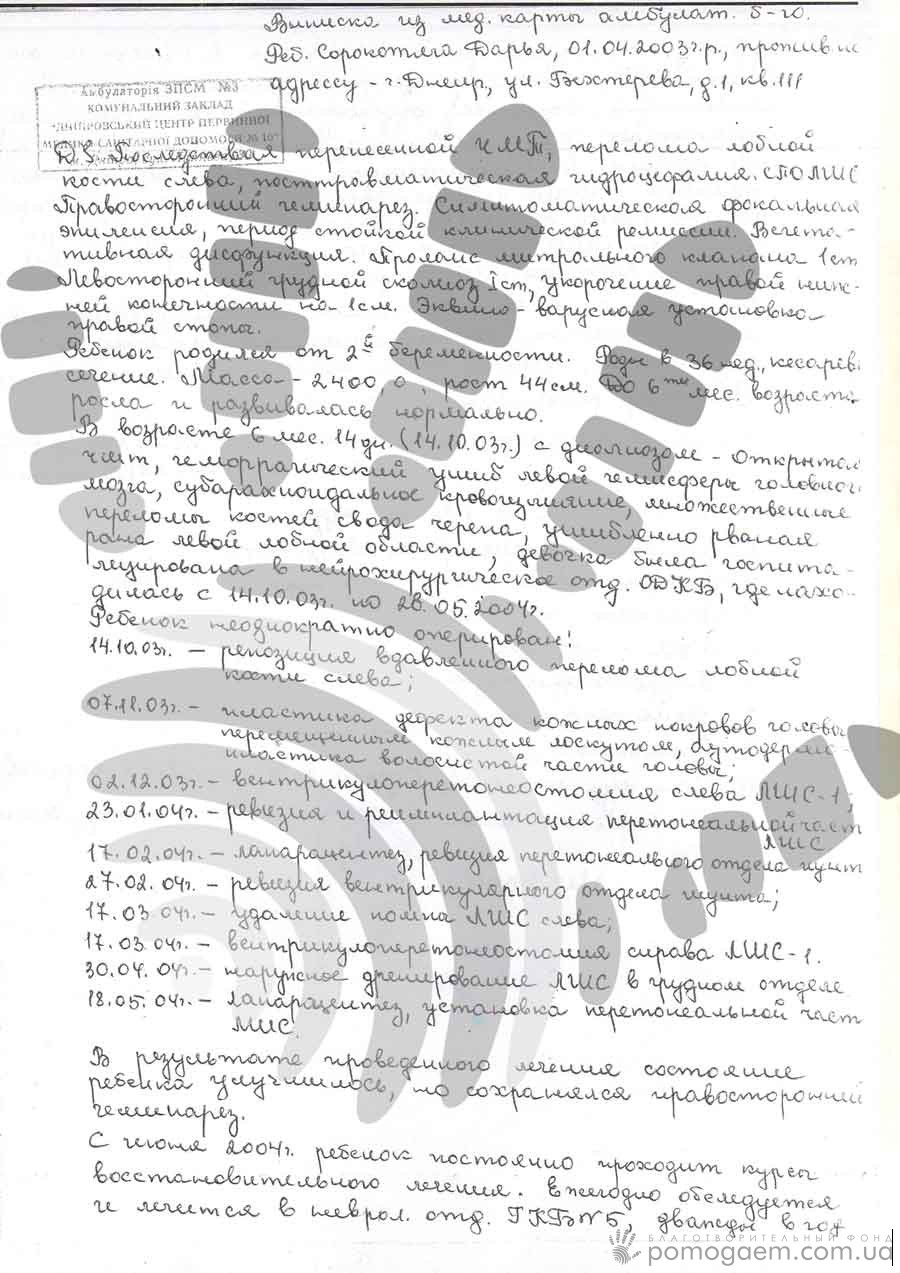 Выписка из мед. карты амбулат. б-го.
Реб. Сорокотяга Дарья, 01.04.2003г.р., прожив. по
адрессу - г. Днепр, ул. Бехтерева, д.1, кв.111
Амбулаторія ЗПСМ №3
КОМУНАЛЬНИЙ ЗАКЛАД
"ДНІПРОВСЬКИЙ ЦЕНТР ПЕРВИННОЇ
МЕДИКО-САНІТАРНОЇ ДОПОМОГИ № 10"
DS: Последствия перенесенной ЧМТ, перелома лобной
кости слева, посттравматическая гидроцефалия. СПОЛШС
Правосторонний гемипарез. Симптоматическая фокальная
эпилепсия, период стойкой клинической ремиссии. Вегета-
тивная дисфункция. Пролапс митрального клапана 1ст
Левосторонний грудной сколиоз Iст, укорочение правой ниж-
ней конечности на 1см. Эквино-варусная установка
правой стопы.
Ребенок родился от 2й беременности. Роды в 36 нед., кесарев
сечение. Масса - 2400,0, рост 44см. До 6ти мес. возраста
росла и развивалась нормально.
В возрасте 6 мес. 14 дн. (14.10.03г.) с диагнозом - Открытая
чмт, геморрагический ушиб левой гемисферы головного
мозга, субарахноидальное кровоизлияние, множественные
переломы костей свода черепа, ушибленно рваная
рана левой лобной области, девочка была госпита-
лизирована в нейрохирургическое отд. ОДКБ, где нахо-
дилась с 14.10.03г. по 26.05.2004г.
Ребенок неоднократно оперирован:
14.10.03г. - репозиция вдавленного перелома лобной
кости слева;
07.11.03г. - пластика дефекта кожных покровов головы
перемещенным кожным лоскутом, аутодермо-
пластика волосистой части головы;
02.12.03г. - вентрикулоперитонеостомия слева ЛШС-1;
23.01.04г. - ревизия и реимплантация перетонеальной част
ЛШС
17.02.04г. - лапарацентез, ревизия перетонеального отдела шунт
27.02.04г. - ревизия вентрикулярного отдела шунта;
17.03.04г. - удаление помпы ЛШС слева;
17.03.04г. - вентрикулоперетонеостомия справа ЛШС-1.
30.04.04г. - наружное дренирование ЛШС в грудном отделе
18.05.04г. - лапарацентез, установка перетонеальной част
ЛШС.
В результате проведенного лечения состояние
ребенка улучшилось, но сохранялся правосторонний
гемипарез.
С июня 2004г. ребенок постоянно проходит курсы
восстановительного лечения. Ежегодно обследуется
и лечится в неврол. отд. ГКБ№5, дважды в год
БЛАГОТВОРИТЕЛЬНЫЙ ФОНД
pomogaem.com.ua